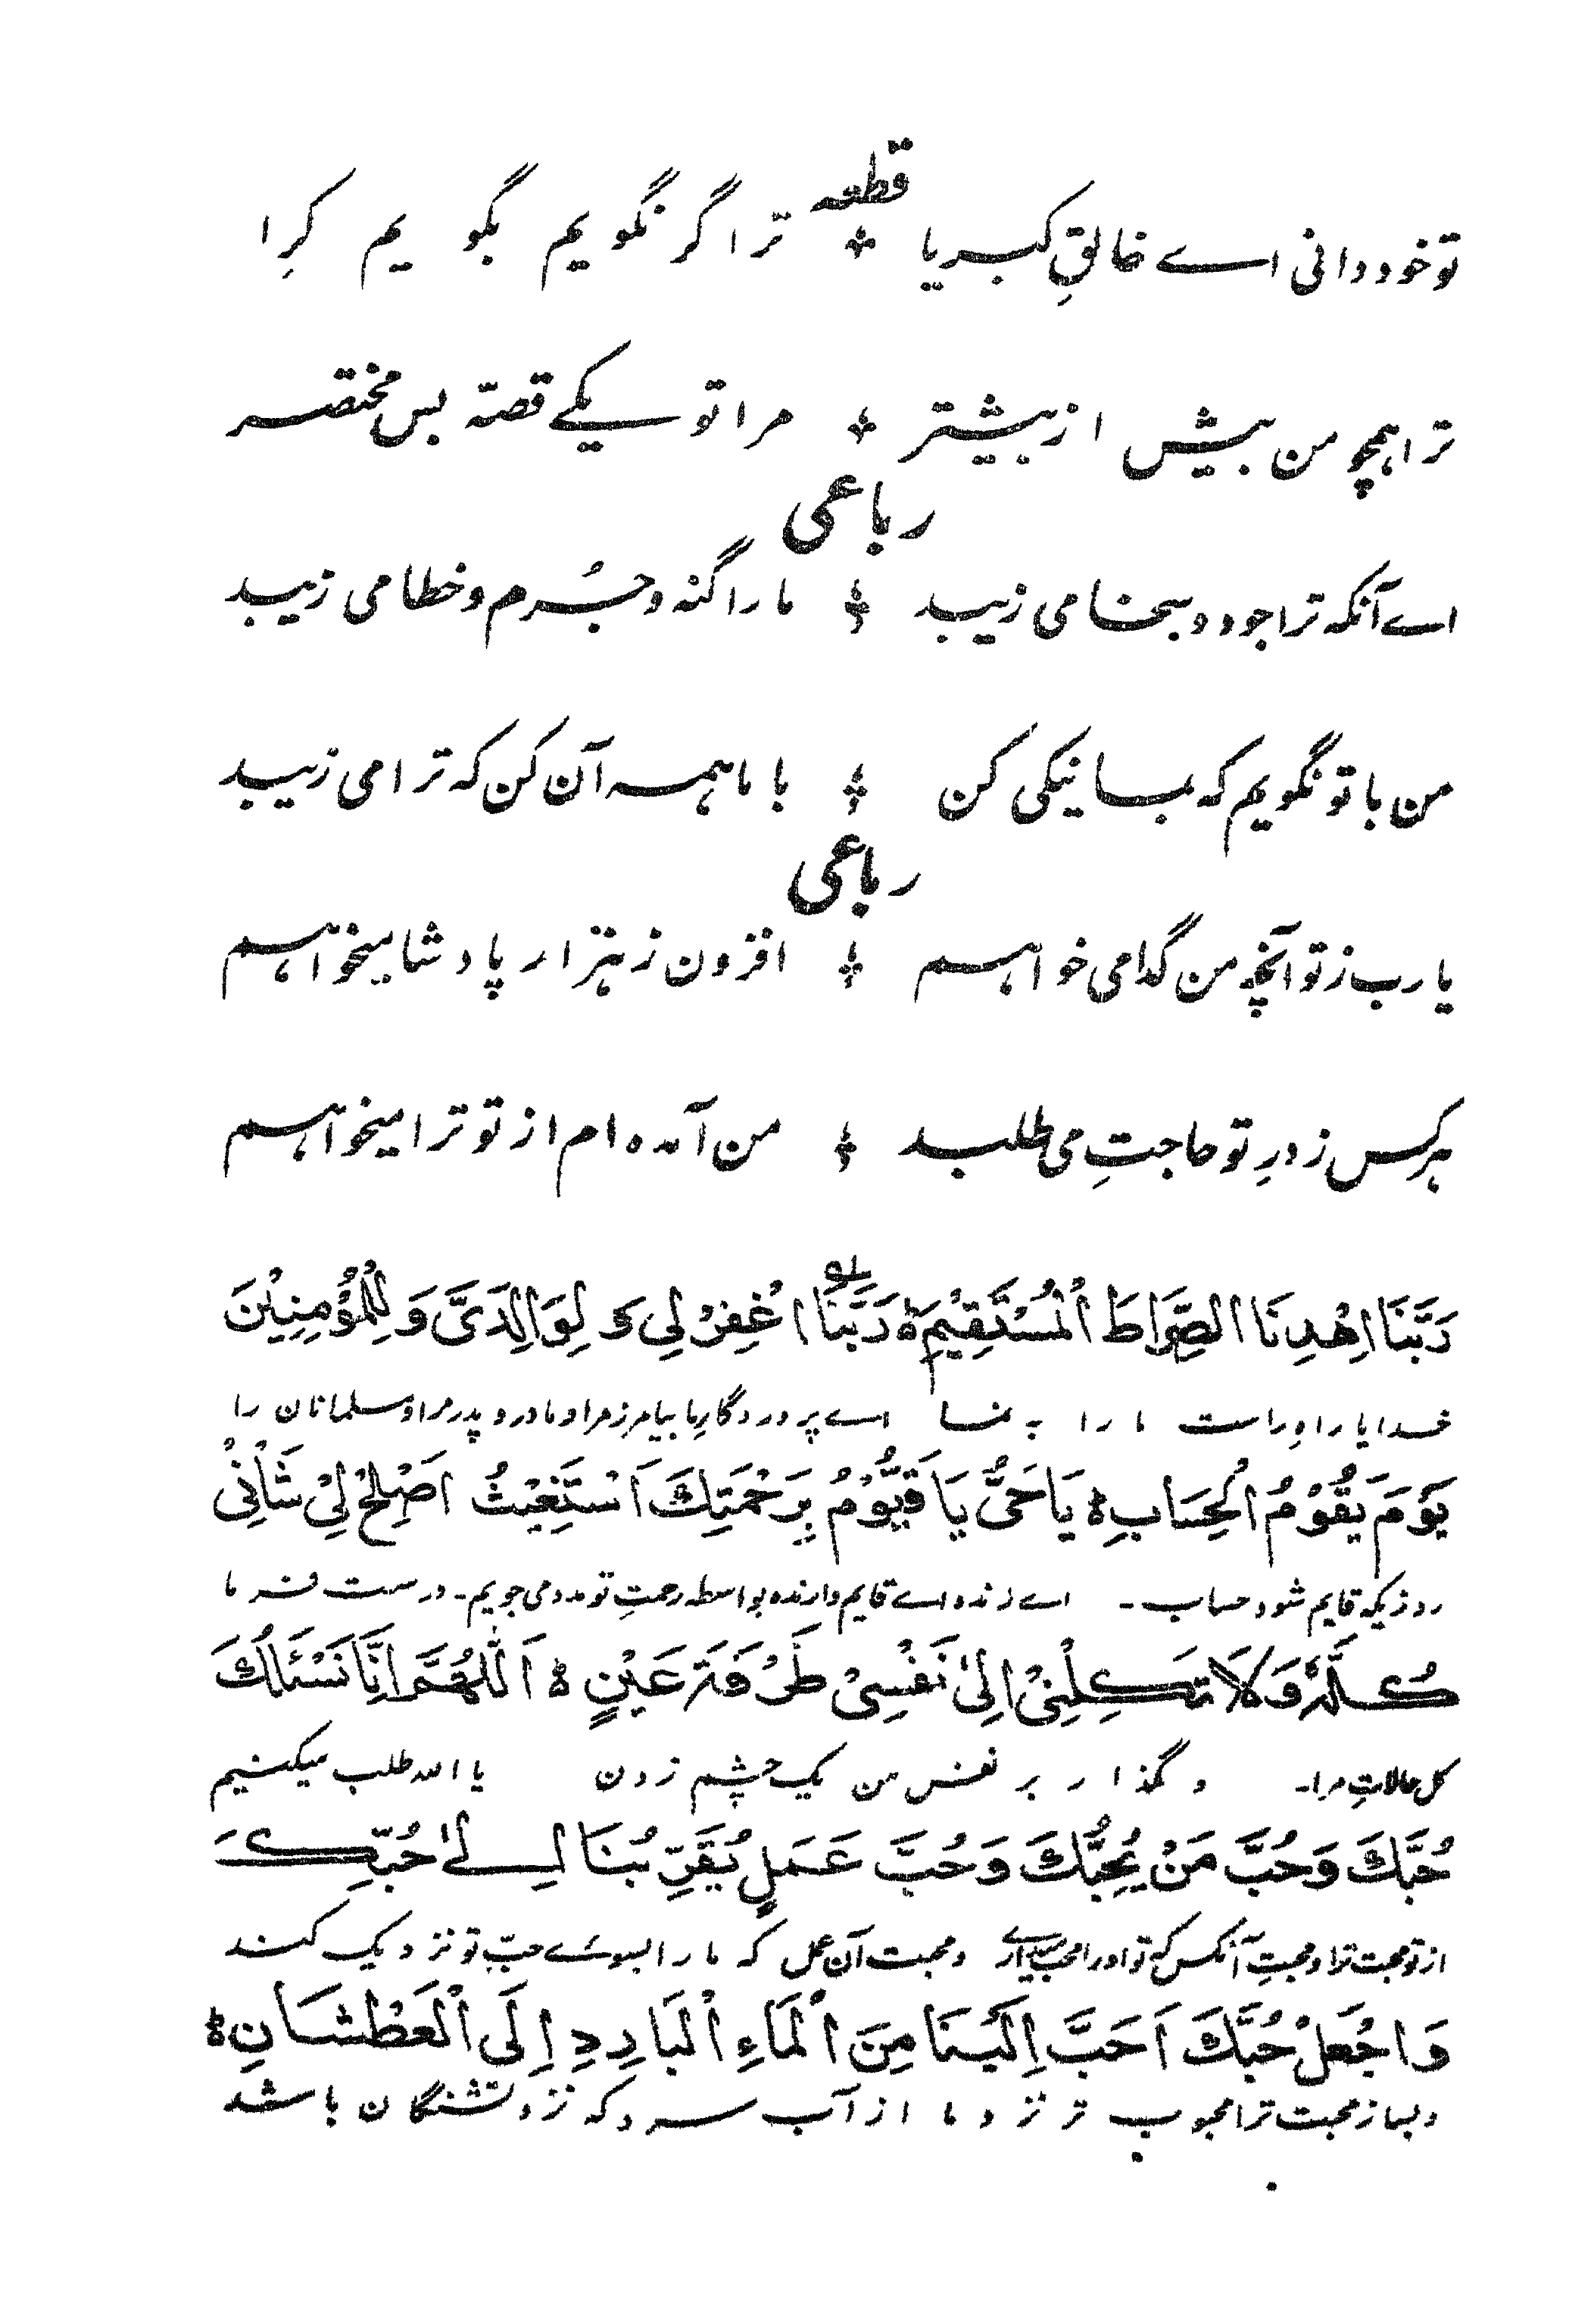 قطعہ
تو خود دانی اے خالقِ کبریا ٭ ترا گر نگویم بگویم کرِا
ترا ہمچو من بیش از بیشتر ٭ مرا تو یکے قصّہ بس مختصر
رباعی
اے آنکہ ترا جود و سخا می زیبد ٭ ما را گنہ و جُرم و خطا می زیبد
من با تو نگویم کہ بما نیکی کن ٭ با ما ہمہ آن کن کہ ترا می زیبد
رباعی
یا رب ز تو انچہ من گدا می خواہم ٭ افزون ز ہزار پادشا میخواہم
ہر کس ز درِ تو حاجتِ می طلبد ٭ من آمدہ ام از تو ترا میخواہم
رَبَّنَا اِهْدِنَا الصِّرَاطَ الْمُسْتَقِيْمَ ط رَبَّنَا اغْفِرْ لِی وَ لِوَالِدَیَّ وَ لِلْمُؤْمِنِيْنَ
خدایا راہِ راست ما را بہ نما اے پروردگارِ ما بیامرز مرا و مادر و پدر مرا و مسلمانان را
يَوْمَ يَقُوْمُ الْحِسَابِ ط يَا حَیُّ يَا قَيُّوْمُ بِرَحْمَتِكَ اَسْتَغِيْثُ اَصْلِحْ لِیْ شَأْنِیْ
روزیکہ قایم شود حساب ۔ اے زندہ اے قایم دارندہ بواسطہ رحمتِ تو مدد می جویم ۔ درست فرما
كُلَّهٗ وَ لَا تَكِلْنِیْ اِلیٰ نَفْسِیْ طَرْفَةَ عَيْنٍ ط اَللّٰهُمَّ اِنَّا نَسْئَلُكَ
کل حالاتِ مرا ۔ و مگذار بر نفس من یک چشم زدن یا اللہ طلب میکنیم
حُبَّكَ وَ حُبَّ مَنْ يُحِبُّكَ وَ حُبَّ عَمَلٍ يُقَرِّبُنَا اِلیٰ حُبِّكَ
از تو محبت ترا و محبتِ آنکس کہ تو او را محبوب داری و محبت آن عمل کہ ما را بسوئے حبّ تو نزدیک کند
وَ اجْعَلْ حُبَّكَ اَحَبَّ اِلَيْنَا مِنَ الْمَاءِ الْبَارِدِ اِلَی الْعَطْشَانِ ط
و بساز محبت ترا محبوب تر نزد ما از آب سرد کہ نزد تشنگان باشد